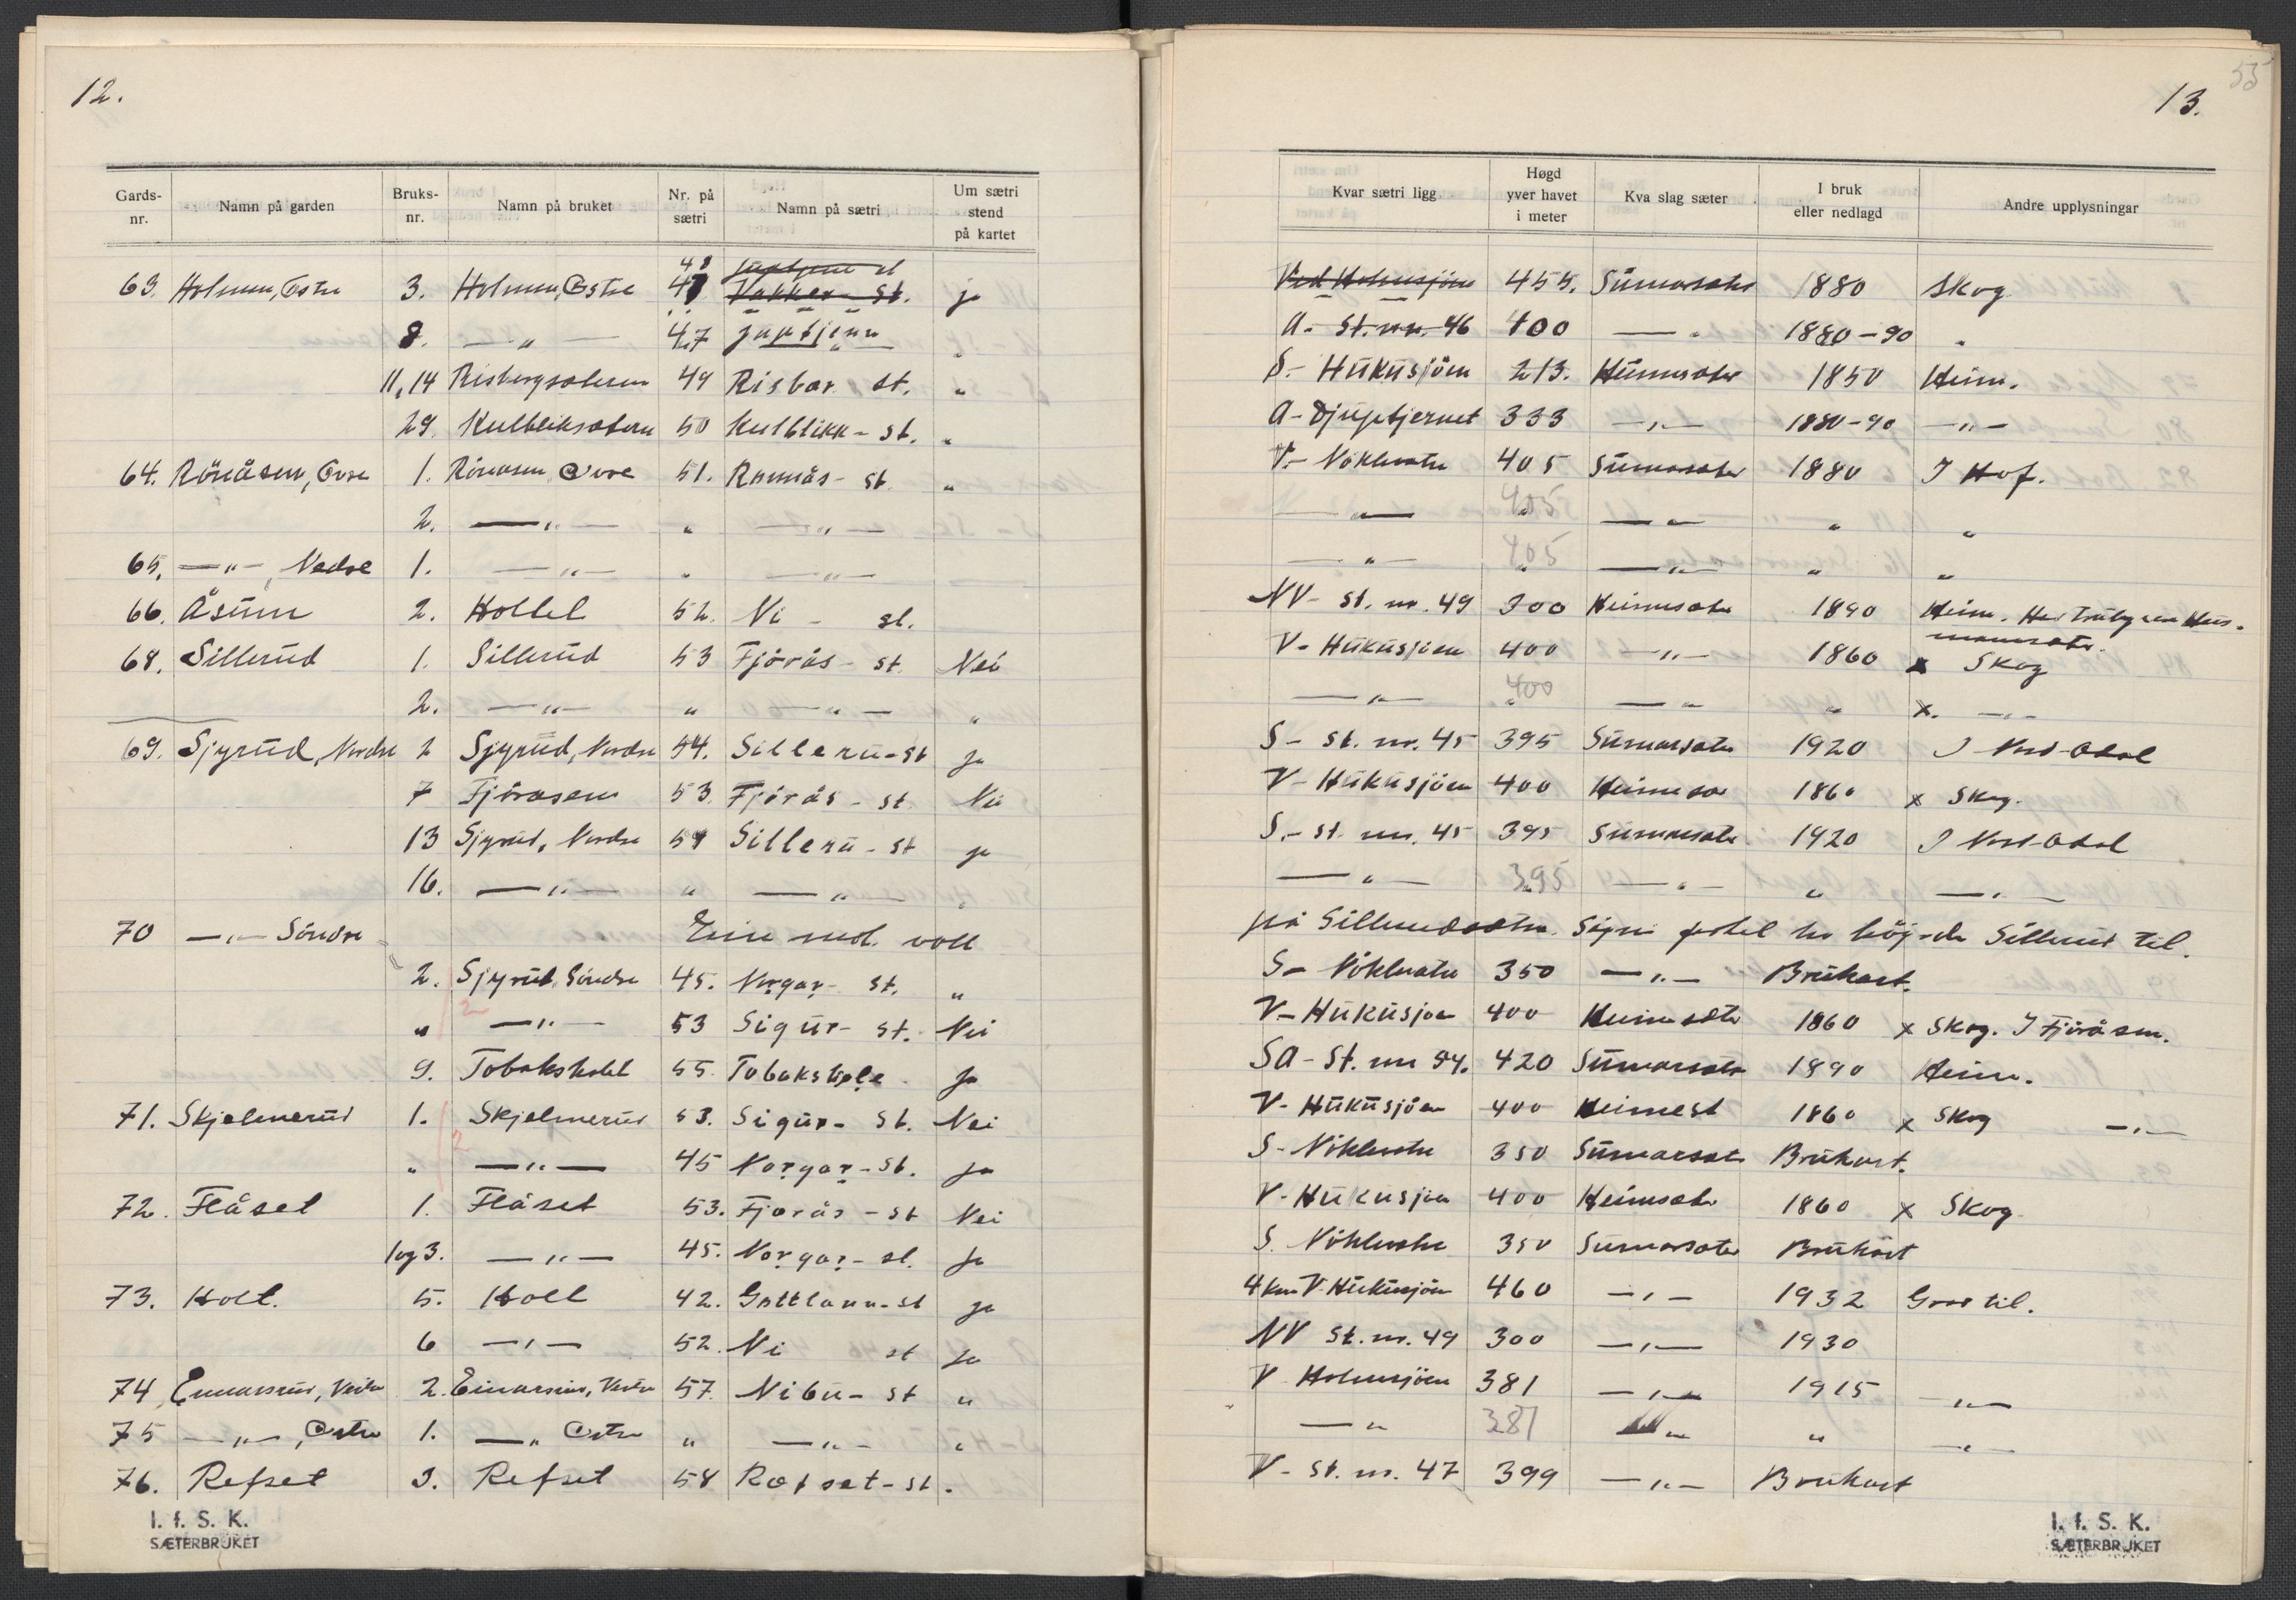 12.
Gards-nr. Namn på garden Bruks-nr. Namn på bruket Nr. på sætri Namn på sætri Um sætri stend på kartet
63. Holmen, Østre 3. Holmen, Østre 48 Vakker- st. ja
8. —„— 47 Juptjenn „
11,14 Risbergsæteren 49 Risbær st. „
29. Kulbliksætern 50 Kulblikk- st. „
64. Rönåsen, Øvre 1. Rönåsen Øvre 51. Rönnås- st. „
2. —„— „ —„—
65. —„—, Nedre 1. —„— „ —„—
66. Åsum 2. Holtet 52. Ni - st.
68. Sillerud 1. Sillerud 53 Fjörås- st. Nei
2. —„— „ —„— „
69. Sjyrud, Nordre 2 Sjyrud, Nordre 54. Silleru-st ja
7 Fjöråsen 53. Fjörås - st. Nei
13 Sjyrud, Nordre 54 Silleru - st ja
16. —„— „ —„— „
70 —„— Söndre Ein nol. voll
2. Sjyrud Söndre 45. Norgar- st. „
„ —„— 53 Sigur- st. Nei
9. Tobaksholet 55. Tobakshole ja
71. Skjelmerud 1. Skjelmerud 53. Sigur- st. Nei
„ —„— 45 Norgar- st. ja
72. Flåset 1. Flåset 53. Fjörås - st Nei
1og3. —„— 45. Norgar- st. ja
73. Holt. 5. Holt 42. Gottlaun-st ja
6 —„— 52. Ni st ja
74 Einarsrud, Vestre 2. Einarsrud, Vestre 57. Nibu- st „
75 —„—, Østre 1. —„ Østre „ —„— „
76. Refset 3. Refset 58 Røfset-st.
I. f. S. K.
SÆTERBRUKET
55
13.
Kvar sætri ligg Høgd yver havet i meter Kva slag sæter I bruk eller nedlagd Andre upplysningar
Ved Holmsjöen 455. Sumarsæter 1880 Skog
A. St. nr. 46 400 —„ 1880-90 „
S.- Hukusjöen 213. Heimsæter 1850 Heim.
A- Djuptjernet 333 —„— 1880-90 —„—
V.- Nöklevatn 405 Sumarsæter 1880 I Hof.
—„— 405 —„— „ „
—„— 405 —„— „ „
NV- st. nr. 49 300 Heimsæter 1890 Heim.
V- Hukusjöen 400 —„— 1860 x Skog
—„— 400 —„— „ x. —„—
S- st. nr. 45 395 Sumarsæter 1920 I Nord-Odal
V- Hukusjöen 400 Heimesæ 1860 x Skog.
S.- st. nr. 45 395 Sumarsæter 1920 I Nord-Odal
—„— 395 —„— „ —„—
på Sillerudsætra. Sillerud til.
S- Nöklevatn 350 —„— Brukast.
V- Hukusjöen 400 Heimsæter 1860 x Skog. I Fjöråsen.
SA- St. nr 54. 420 Sumarsæter 1890 Heim.
V- Hukusjöen 400 Heimest 1860 x Skog —„—
S- Nöklevatn 350 Sumarsæt Brukast.
V- Hukusjöen 400 Heimsæter 1860 x Skog
S. Nöklevatn 350 Sumarsæter Brukast
4 km V. Hukusjöen 460 —„— 1932 Gror til.
NV st. nr. 49 300 —„— 1930
V Holmsjöen 381 —„— 1915 —„—
—„ 381 „ „ —„—
V- St. nr. 47 399 —„— Brukast
I. f. S. K.
SÆTERBRUKET